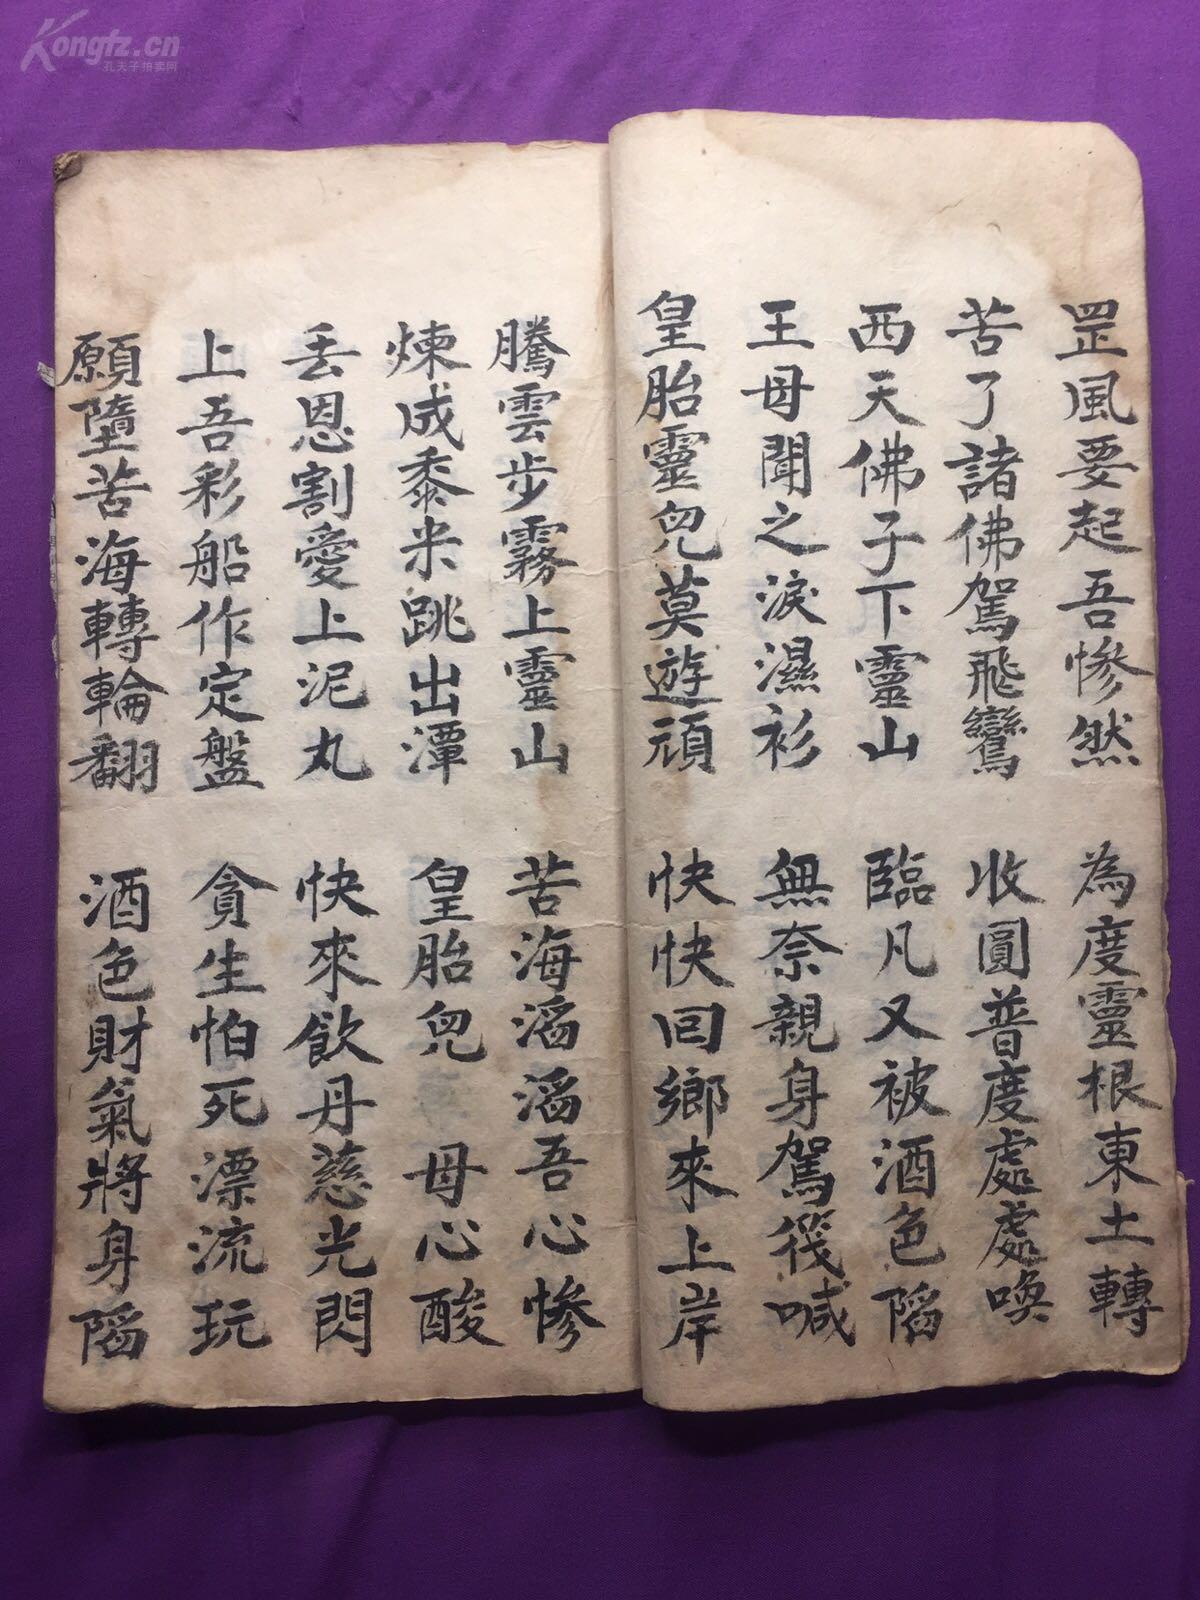 Kongfz.cn
孔夫子拍卖网
罡風要起吾慘然 為度靈根東土轉
苦了諸佛駕飛鸞 收圓普度處處喚
西天佛子下靈山 臨凡又被酒色陷
王母聞之淚濕衫 無奈親身駕筏喊
皇胎靈兒莫遊頑 快快回鄉來上岸
騰雲步霧上靈山 苦海滔滔吾心慘
煉成黍米跳出潭 皇胎兒 母心酸
丢恩割愛上泥丸 快來飲丹慈光閃
上吾彩船作定盤 貪生怕死漂流玩
願墮苦海轉輪翻 酒色財氣將身陷